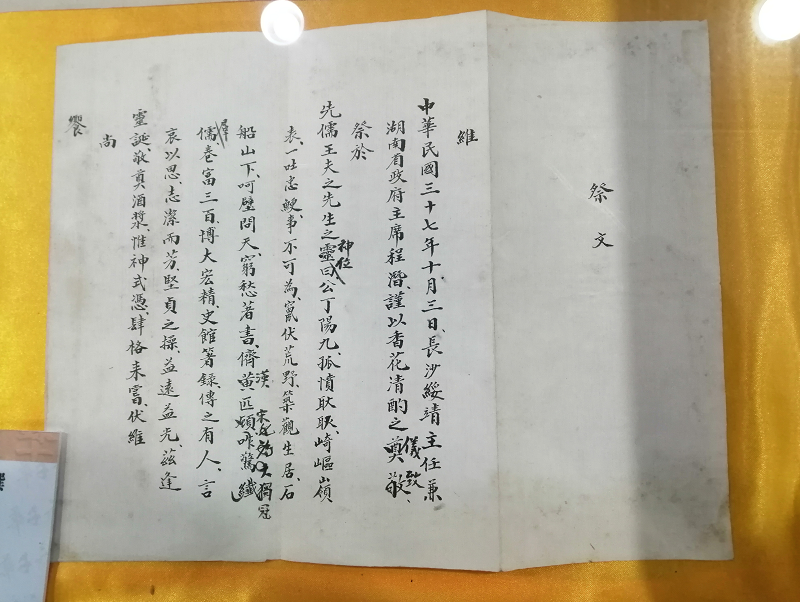 祭文
維
中華民國三十七年十月三日、長沙綏靖主任兼
湖南省政府主席程潛、謹以香花清酌之奠儀致敬、
祭於
先儒王夫之先生之靈神位曰、公丁陽九、孤憤耿耿、崎嶇嶺
表、一吐忠鯁、事不可為、竄伏荒野、築觀生居、石
船山下、呵壁問天、窮愁著書、儕黃匹頋、
漢宋
獨冠
群儒、卷富三百、博大宏精、史館著錄、傳之有人、言
哀以思、志潔而芳、堅貞之操、益遠益光、茲逢
靈誕、敬奠酒漿、惟神式憑、肆格来嘗、伏維
尚
饗